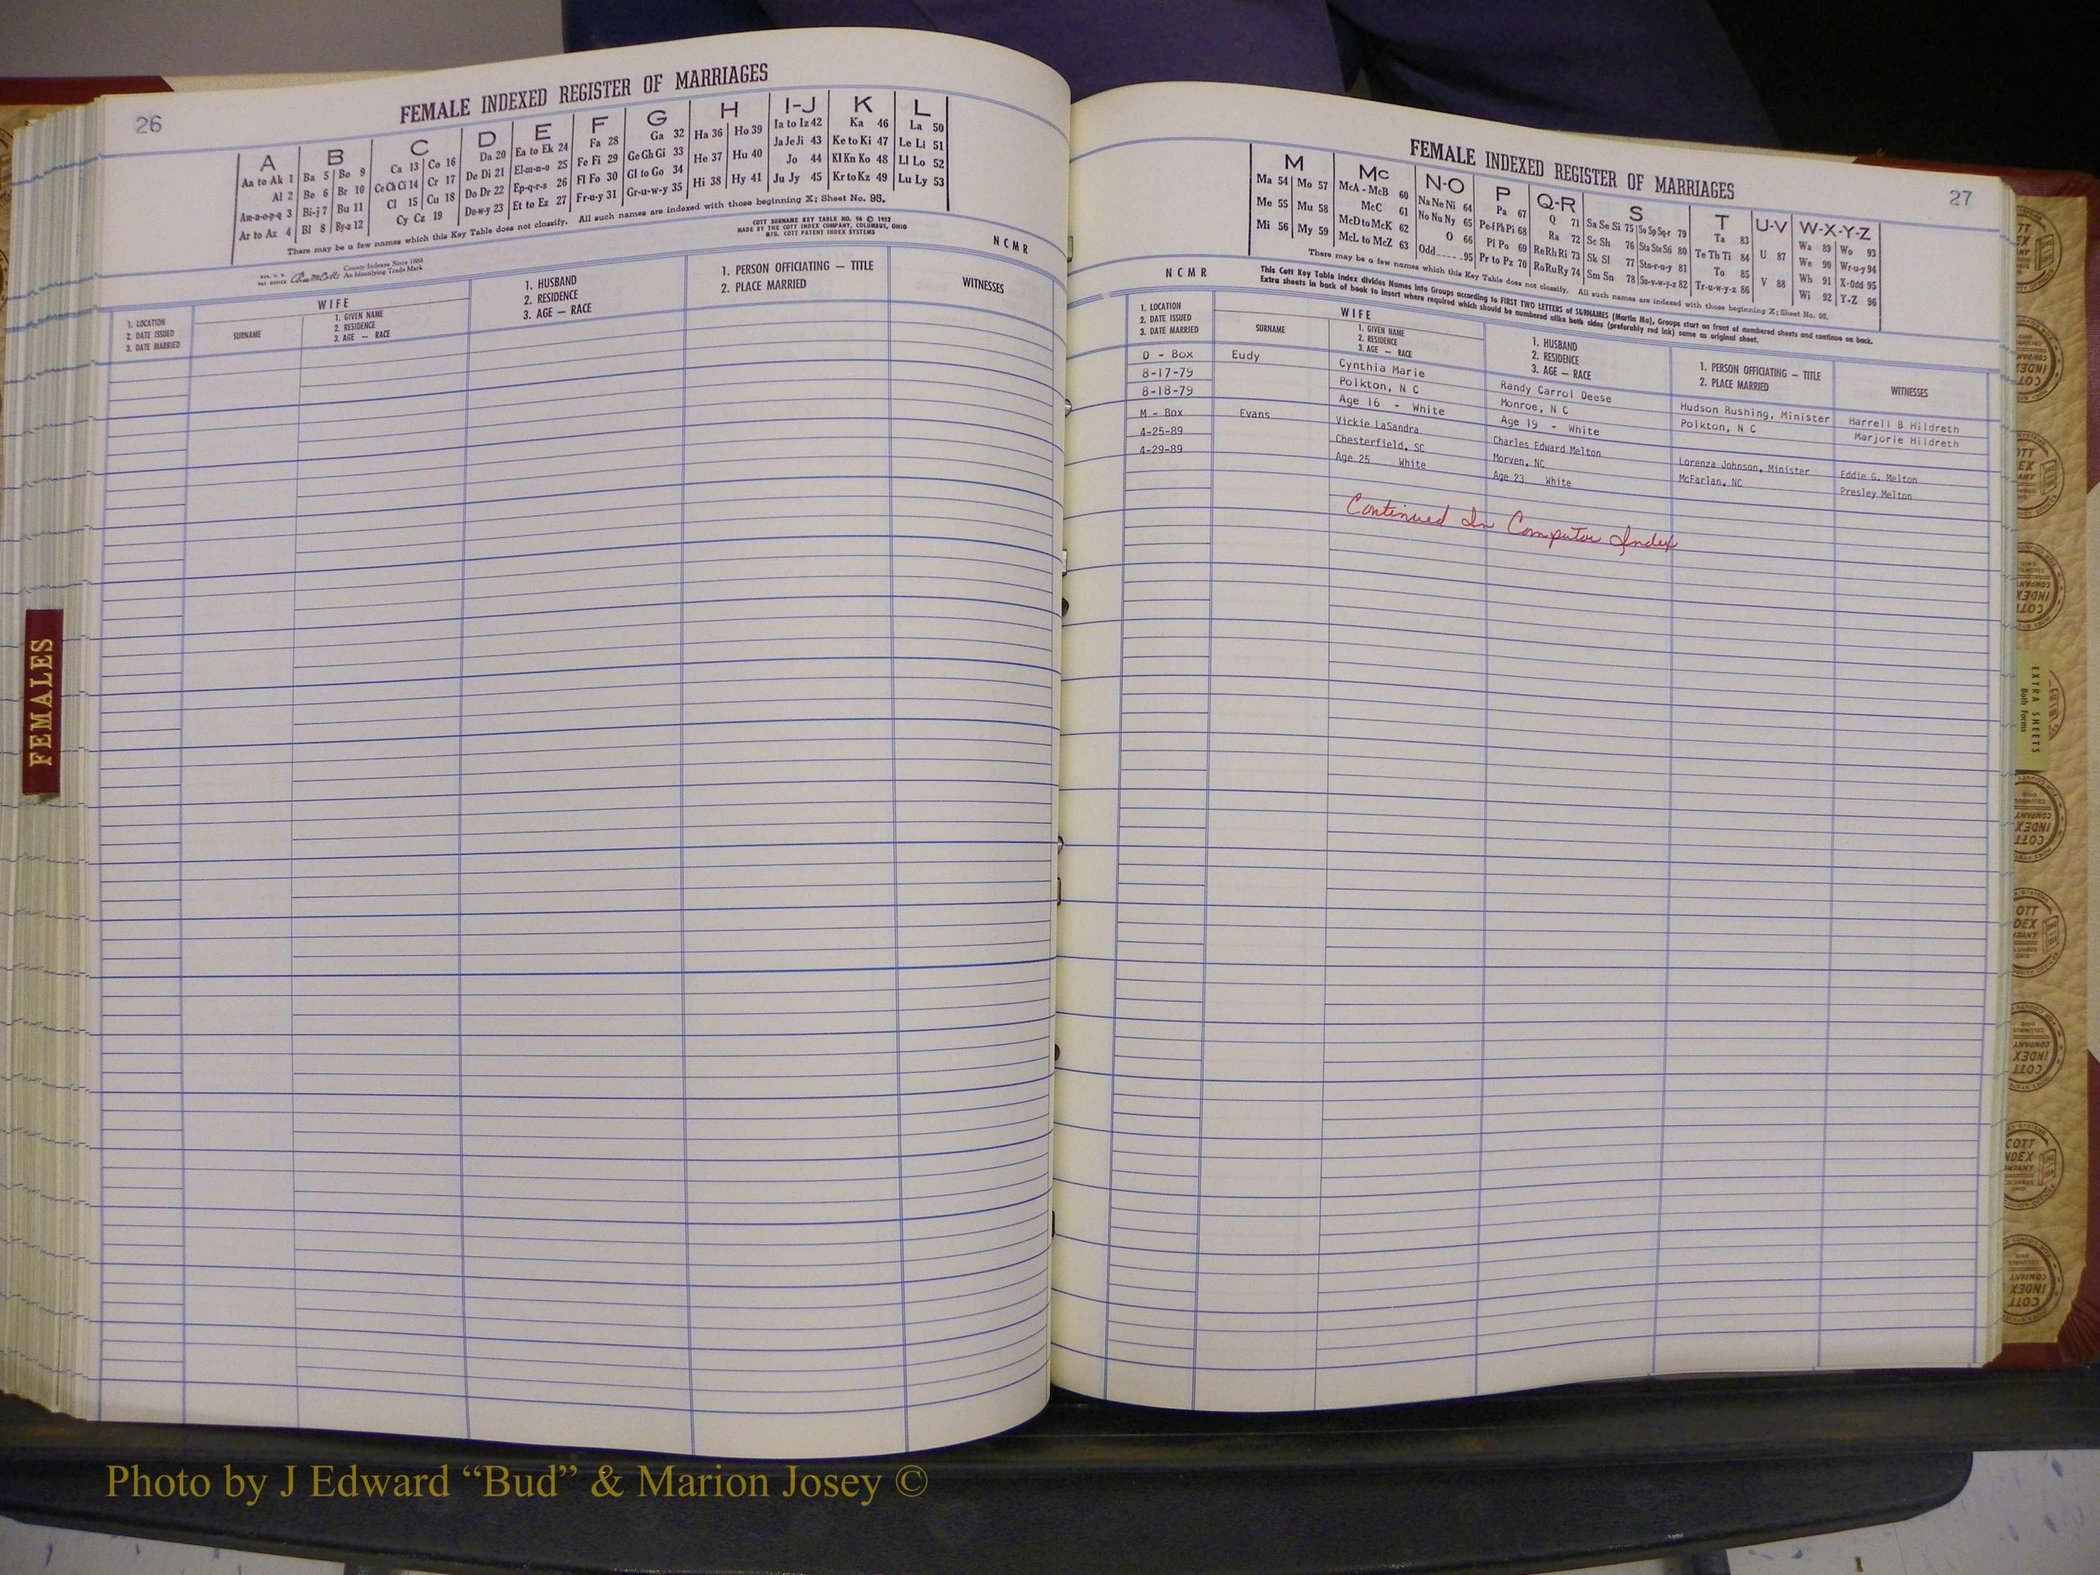 26
FEMALE INDEXED REGISTER OF MARRIAGES
A B C D E F G H I-J K L
Aa to Ak 1 Ba 5 Bo 9 Ca 13 Co 16 Da 20 Ea to Ek 24 Fa 28 Ga 32 Ha 36 Ho 39 Ia to Iz 42 Ka 46 La 50
Al 2 Be 6 Br 10 Ce Ch Ci 14 Cr 17 De Di 21 El-m-n-o 25 Fe Fi 29 Ge Gh Gi 33 He 37 Hu 40 Ja Je Ji 43 Ke to Ki 47 Le Li 51
Am-n-o-p-q 3 Bi-j 7 Bu 11 Cl 15 Cu 18 Do Dr 22 Ep-q-r-s 26 Fl Fo 30 Gl to Go 34 Hi 38 Hy 41 Jo 44 Kl Kn Ko 48 Ll Lo 52
Ar to Az 4 Bl 8 By-z 12 Cy Cz 19 Du-w-y 23 Et to Ez 27 Fr-u-y 31 Gr-u-w-y 35 Ju Jy 45 Kr to Kz 49 Lu Ly 53
There may be a few names which this Key Table does not classify. All such names are indexed with those beginning X; Sheet No. 95.
COTT SURNAME KEY TABLE NO. 96 © 1952
MADE BY THE COTT INDEX COMPANY, COLUMBUS, OHIO
MFG. COTT PATENT INDEX SYSTEMS
N C M R
County Indexes Since 1888
An Identifying Trade Mark
1. LOCATION
2. DATE ISSUED
3. DATE MARRIED
WIFE
SURNAME
1. GIVEN NAME
2. RESIDENCE
3. AGE — RACE
1. HUSBAND
2. RESIDENCE
3. AGE — RACE
1. PERSON OFFICIATING — TITLE
2. PLACE MARRIED
WITNESSES
FEMALES
27
FEMALE INDEXED REGISTER OF MARRIAGES
M Mc N-O P Q-R S T U-V W-X-Y-Z
Ma 54 Mo 57 McA - McB 60 Na Ne Ni 64 Pa 67 Q 71 Sa Se Si 75 So Sp Sq-r 79 Ta 83 U 87 Wa 89 Wo 93
Me 55 Mu 58 McC 61 No Nu Ny 65 Pe-f Ph Pi 68 Ra 72 Sc Sh 76 Sta Ste Sti 80 Te Th Ti 84 V 88 We 90 Wr-u-y 94
Mi 56 My 59 McD to McK 62 O 66 Pl Po 69 Re Rh Ri 73 Sk Sl 77 Sto-r-u-y 81 To 85 Wh 91 X-Odd 95
McL to McZ 63 Odd 95 Pr to Pz 70 Ro Ru Ry 74 Sm Sn 78 Su-v-w-y-z 82 Tr-u-w-y-z 86 Wi 92 Y-Z 96
There may be a few names which this Key Table does not classify. All such names are indexed with those beginning X; Sheet No. 95.
N C M R
This Cott Key Table Index divides Names into Groups according to FIRST TWO LETTERS of SURNAMES (Martin Ma), Groups start on front of numbered sheets and continue on back.
Extra sheets in back of book to insert where required which should be numbered alike both sides (preferably red ink) same as original sheet.
1. LOCATION
2. DATE ISSUED
3. DATE MARRIED
WIFE
SURNAME
1. GIVEN NAME
2. RESIDENCE
3. AGE — RACE
1. HUSBAND
2. RESIDENCE
3. AGE — RACE
1. PERSON OFFICIATING — TITLE
2. PLACE MARRIED
WITNESSES
D - Box Eudy Cynthia Marie Randy Carrol Deese Hudson Rushing, Minister Harrell B Hildreth
8-17-79 Polkton, N C Monroe, N C Polkton, N C Marjorie Hildreth
8-18-79 Age 16 - White Age 19 - White
M - Box Evans Vickie LaSandra Charles Edward Melton Lorenza Johnson, Minister Eddie G. Melton
4-25-89 Chesterfield, SC Morven, NC McFarlan, NC Presley Melton
4-29-89 Age 25 White Age 23 White
Continued In Computer Index
EXTRA SHEETS
Both Forms
COTT INDEX COMPANY
Photo by J Edward “Bud” & Marion Josey ©